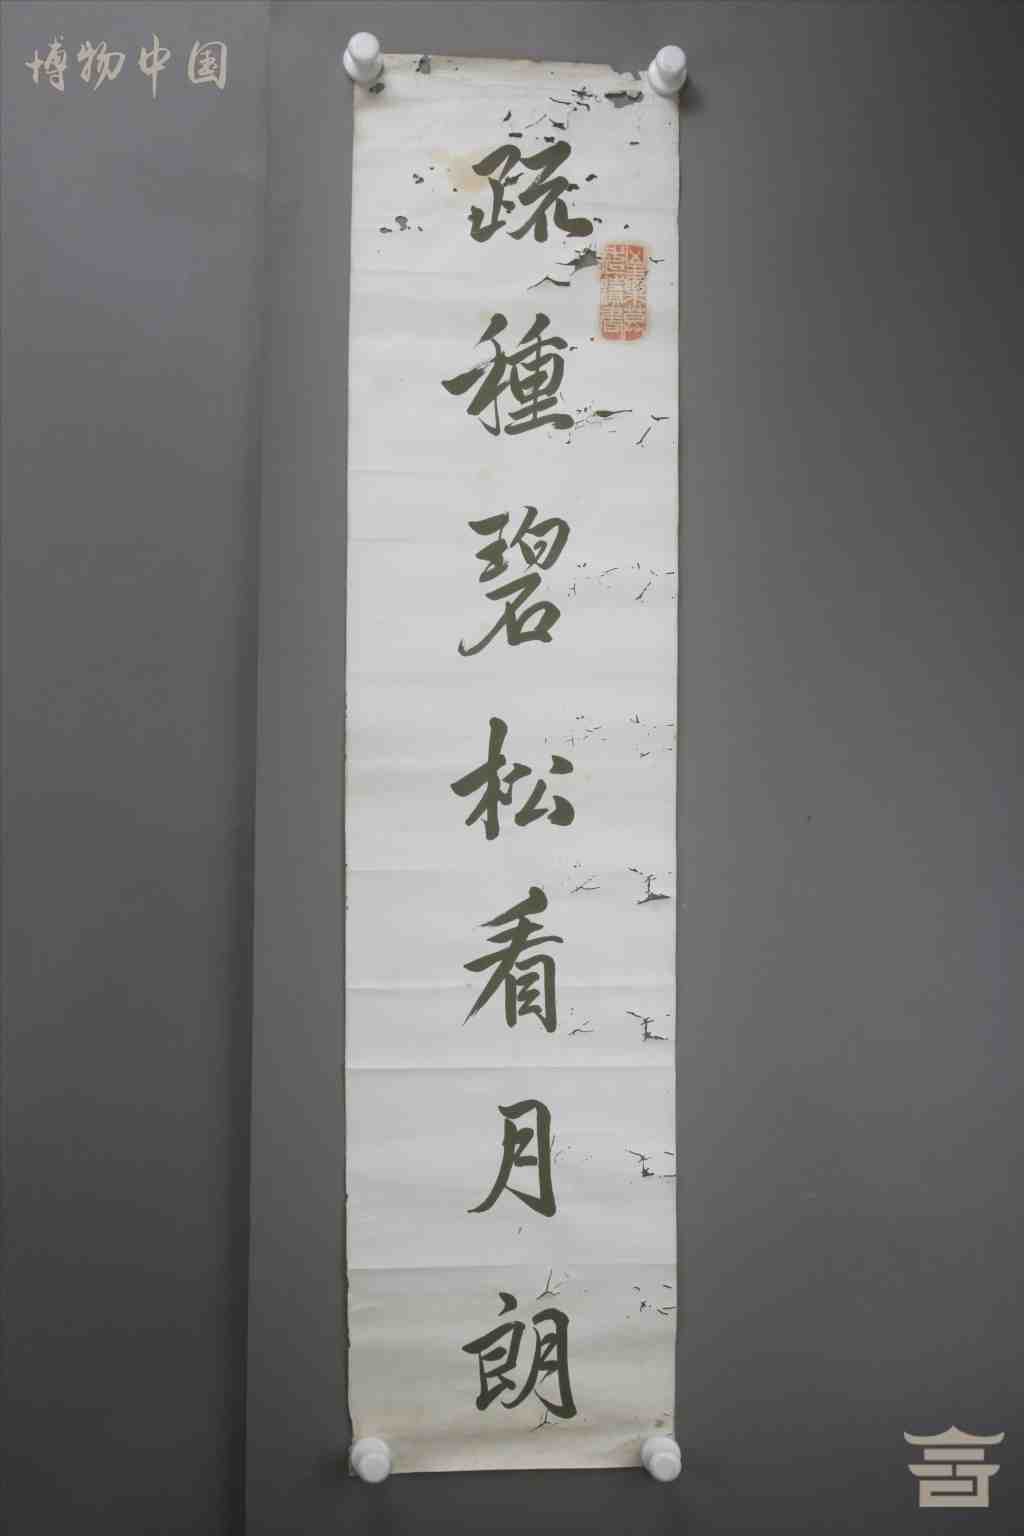 博物中国
疏種碧松看月朗